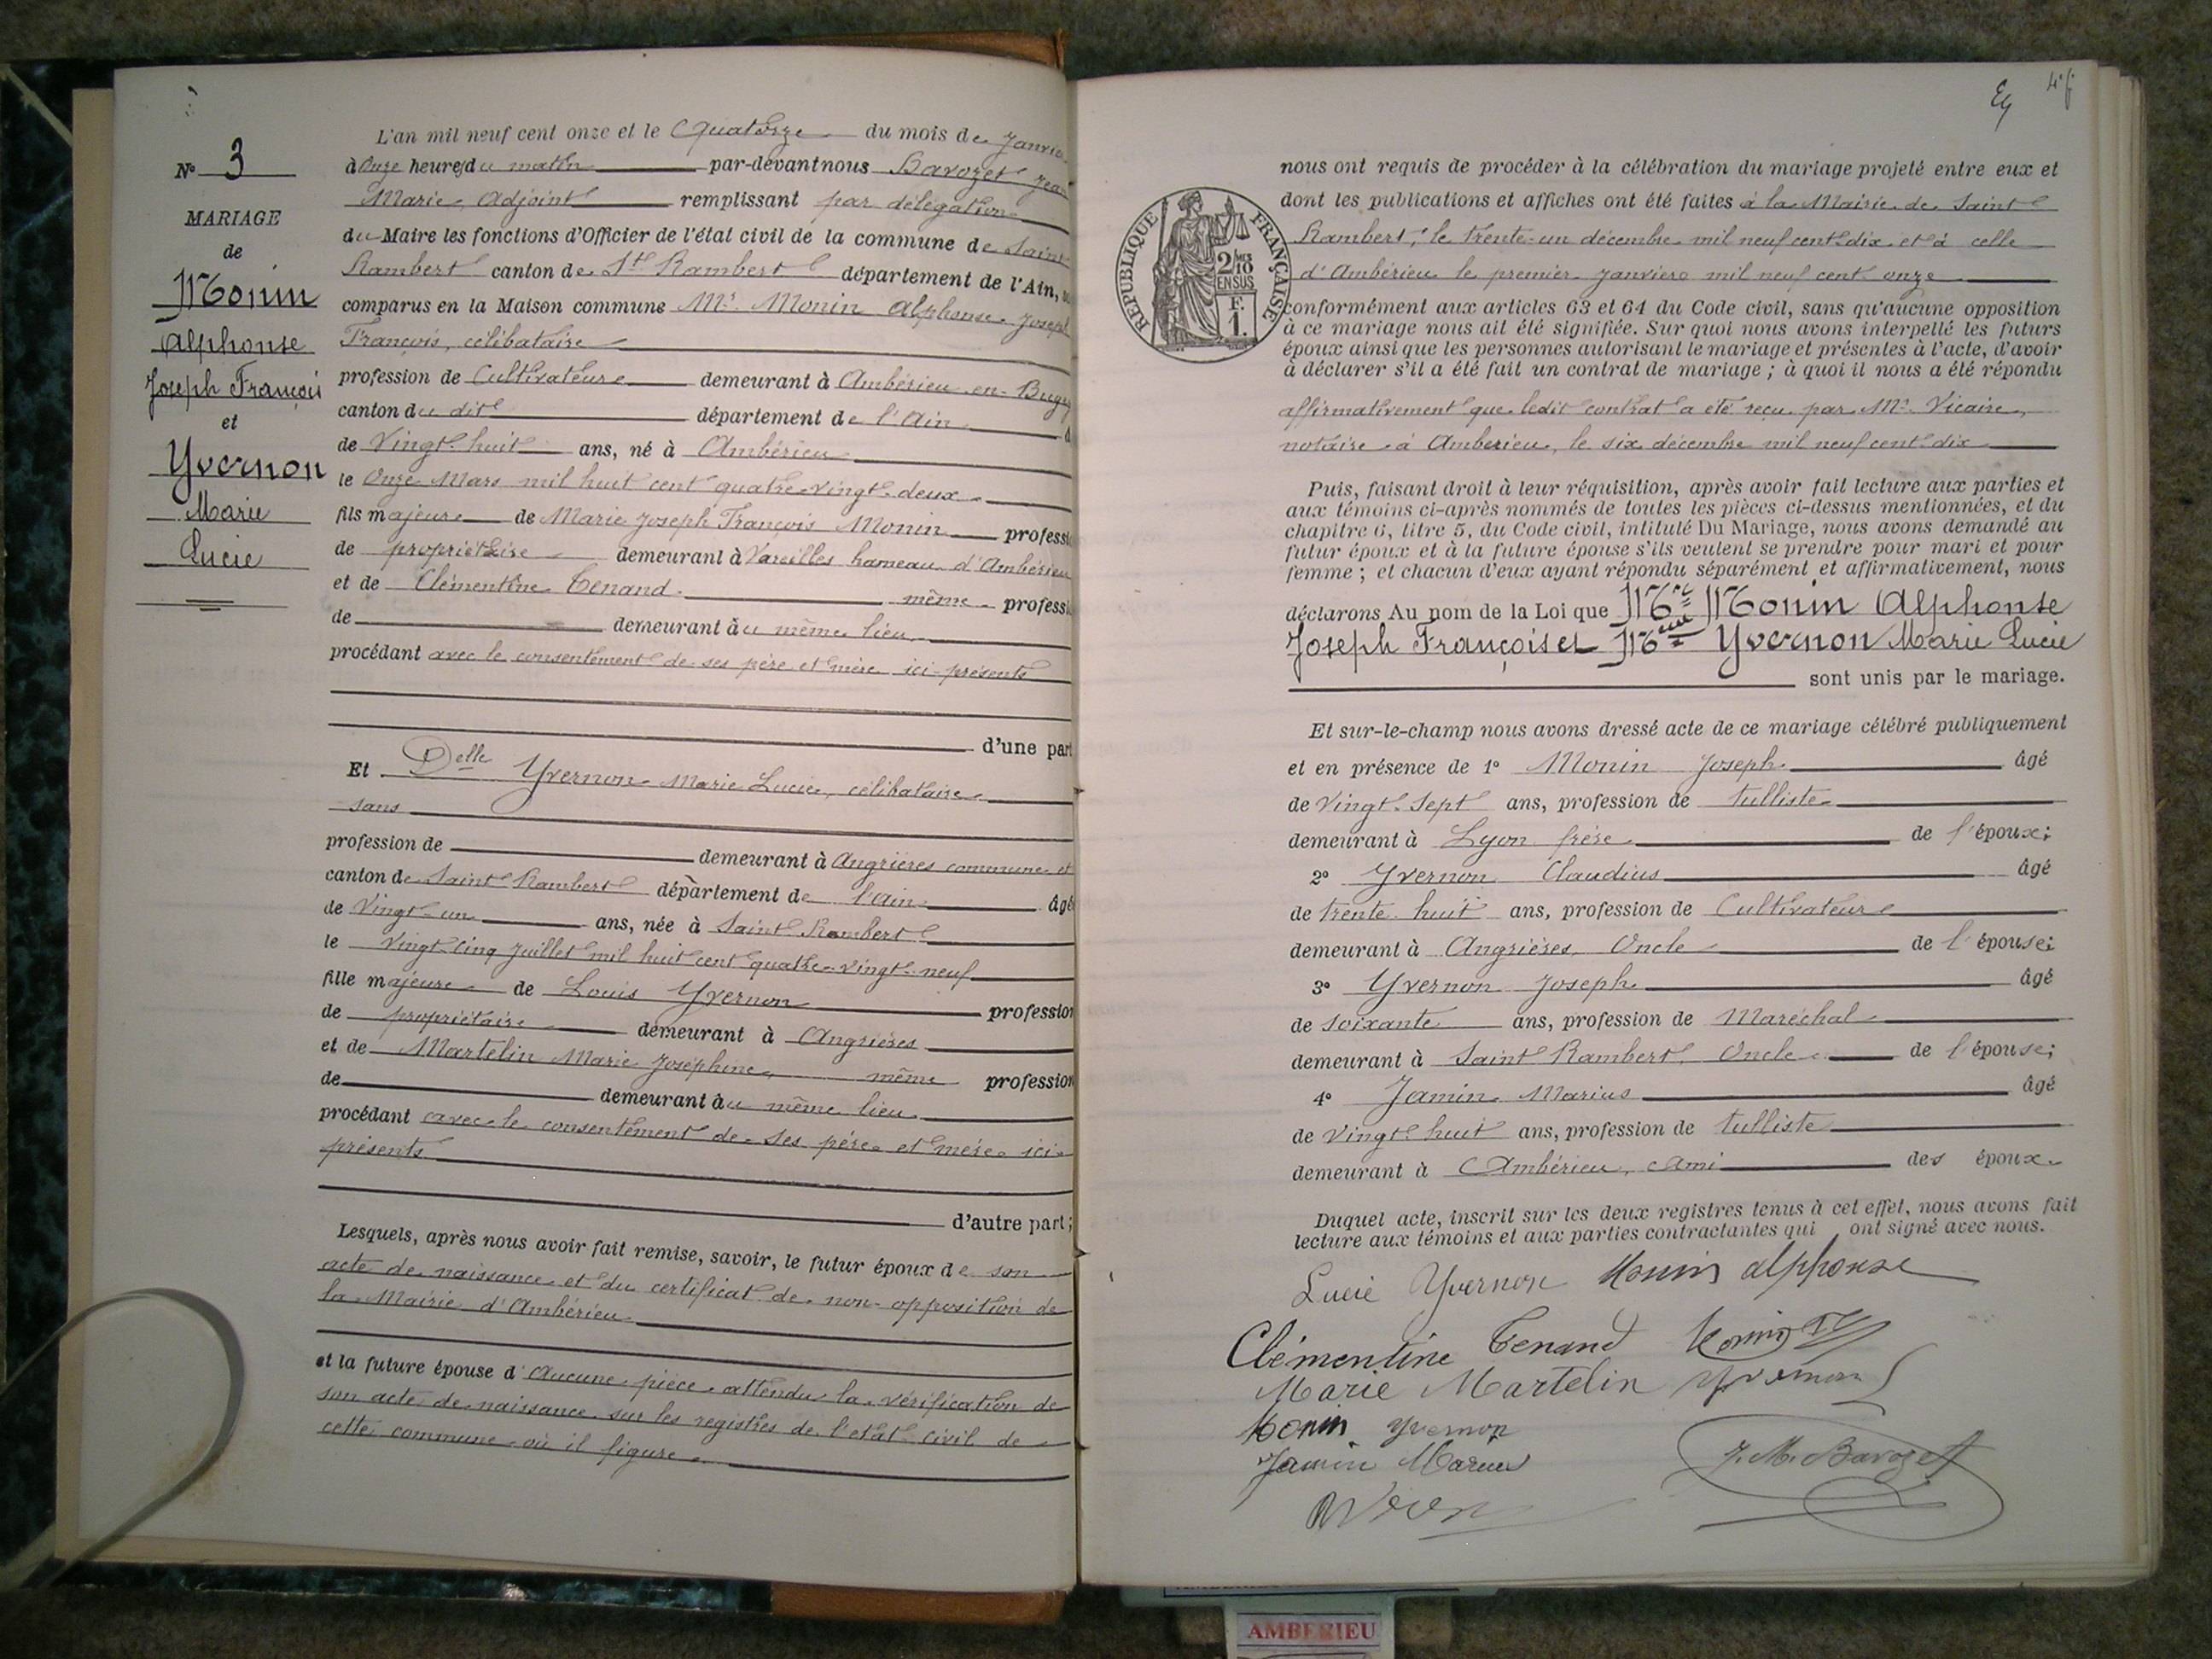 N° 3
MARIAGE
de
Monin
Alphonse
Joseph François
et
Yvernon
Marie
Lucie
L'an mil neuf cent onze et le quatorze du mois de Janvie
à onze heures du matin par-devant nous Bavozet Jean
Marie, Adjoint remplissant par délégation
du Maire les fonctions d'Officier de l'état civil de la commune de Saint
Rambert canton de St Rambert département de l'Ain,
comparus en la Maison commune Mr. Monin Alphonse Joseph
François, célibataire
profession de Cultivateur demeurant à Ambérieu-en-Bugey
canton du dit département de l'Ain
de Vingt-huit ans, né à Ambérieu
le Onze Mars mil huit cent quatre-vingt-deux
fils majeur de Marie Joseph François Monin professi
de propriétaire demeurant à Vareilles hameau d'Ambérieu
et de Clémentine Tenand même professi
de demeurant au même lieu
procédant avec le consentement de ses père et mère ici présents
d'une part
Et Delle Yvernon Marie Lucie, célibataire
sans
profession de demeurant à Angrières commune et
canton de Saint Rambert département de l'Ain âgé
de Vingt-un ans, née à Saint Rambert
le Vingt-cinq Juillet mil huit cent quatre-vingt-neuf
fille majeure de Louis Yvernon profession
de propriétaire demeurant à Angrières
et de Martelin Marie Joséphine, même profession
de demeurant au même lieu
procédant avec le consentement de ses père et mère ici
présents
d'autre part;
Lesquels, après nous avoir fait remise, savoir, le futur époux de son
acte de naissance et du certificat de non-opposition de
la Mairie d'Ambérieu
et la future épouse d'Aucune pièce attendu la vérification de
son acte de naissance sur les registres de l'état civil de
cette commune où il figure
nous ont requis de procéder à la célébration du mariage projeté entre eux et
dont les publications et affiches ont été faites à la Mairie de Saint
Rambert, le trente-un décembre mil neuf cent dix et à celle
d'Ambérieu le premier Janvier mil neuf cent onze
RÉPUBLIQUE FRANÇAISE
2/10 MES
EN SUS
F.
1.
conformément aux articles 63 et 64 du Code civil, sans qu'aucune opposition
à ce mariage nous ait été signifiée. Sur quoi nous avons interpellé les futurs
époux ainsi que les personnes autorisant le mariage et présentes à l'acte, d'avoir
à déclarer s'il a été fait un contrat de mariage; à quoi il nous a été répondu
affirmativement que ledit contrat a été reçu par Me. Vicaire,
notaire à Ambérieu, le six décembre mil neuf cent dix
Puis, faisant droit à leur réquisition, après avoir fait lecture aux parties et
aux témoins ci-après nommés de toutes les pièces ci-dessus mentionnées, et du
chapitre 6, titre 5, du Code civil, intitulé Du Mariage, nous avons demandé au
futur époux et à la future épouse s'ils veulent se prendre pour mari et pour
femme; et chacun d'eux ayant répondu séparément et affirmativement, nous
déclarons Au nom de la Loi que Mr Monin Alphonse
Joseph François et Melle Yvernon Marie Lucie
sont unis par le mariage.
Et sur-le-champ nous avons dressé acte de ce mariage célébré publiquement
et en présence de 1° Monin Joseph âgé
de Vingt-sept ans, profession de tulliste
demeurant à Lyon frère de l'époux;
2° Yvernon Claudius âgé
de trente huit ans, profession de Cultivateur
demeurant à Angrières, Oncle de l'épouse;
3° Yvernon Joseph âgé
de soixante ans, profession de Maréchal
demeurant à Saint Rambert, Oncle de l'épouse;
4° Jamin Marius âgé
de vingt huit ans, profession de tulliste
demeurant à Ambérieu, ami des époux
Duquel acte, inscrit sur les deux registres tenus à cet effet, nous avons fait
lecture aux témoins et aux parties contractantes qui ont signé avec nous.
Lucie Yvernon Monin alphonse
Clémentine Tenand Monin
Marie Martelin Yvernon
Monin Yvernon
Jamin Marius J. M. Bavozet
AMBERIEU